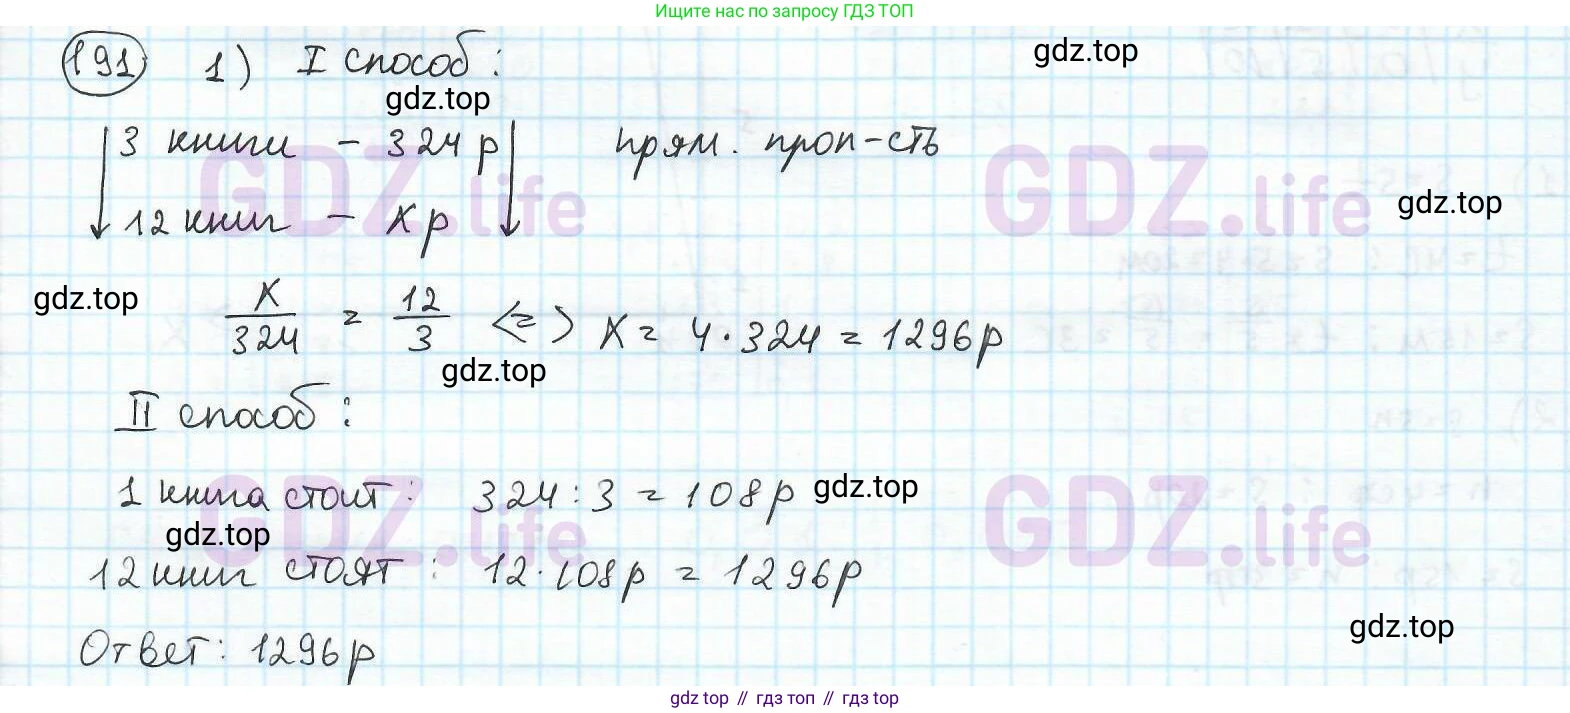 Ищите нас по запросу ГДЗ ТОП
191 1) I способ:
gdz.top
gdz.top
3 книги - 324 р прям. проп-сть
GDZ.life
GDZ.life
12 книг - x р
gdz.top
gdz.top
x/324 = 12/3 <=> x = 4·324 = 1296р
gdz.top
II способ:
1 книга стоит: 324:3 = 108р
gdz.top
gdz.top
GDZ.life
GDZ.life
12 книг стоят: 12·108р = 1296р
gdz.top
Ответ: 1296р
gdz top // гдз топ // gdz top